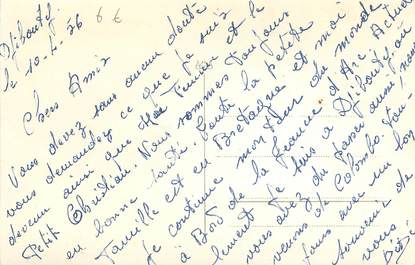 Djibouti
le 10-4-56
6 €
Chers Amis
Vous devez sans aucun doute
vous demandez ce que je suis
devenu ainsi que
Petit Christian. Nous sommes toujours
en bonne santé. Toute la petite
famille est en Bretagne et moi
je continue mon tour du monde
à Bord de la Jeanne d'Arc Actuel
lement je suis à Djibouti où
vous avez du passer aussi, nous
venons de Colombo.
avec un bon
souvenir de
vous